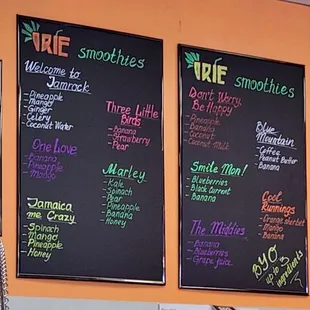 IRIE smoothies
Welcome to
Jamrock
-Pineapple
-Mango
-Ginger
-Celery
-Coconut Water
One Love
-Banana
-Pineapple
-Mango
Jamaica
me Crazy
-Spinach
-Mango
-Pineapple
-Honey
Three Little
Birds
-Banana
-Strawberry
-Pear
Marley
-Kale
-Spinach
-Pear
-Pineapple
-Banana
-Honey
IRIE smoothies
Don't Worry,
Be Happy
-Pineapple
-Banana
-Coconut
-Coconut Milk
Smile Mon!
-Blueberries
-Black Currant
-Banana
The Maddies
-Banana
-Blueberries
-Grape juice
Blue
Mountain
-Coffee
-Peanut Butter
-Banana
Cool
Runnings
-Orange sherbet
-Mango
-Banana
BYO
up to 3
ingredients